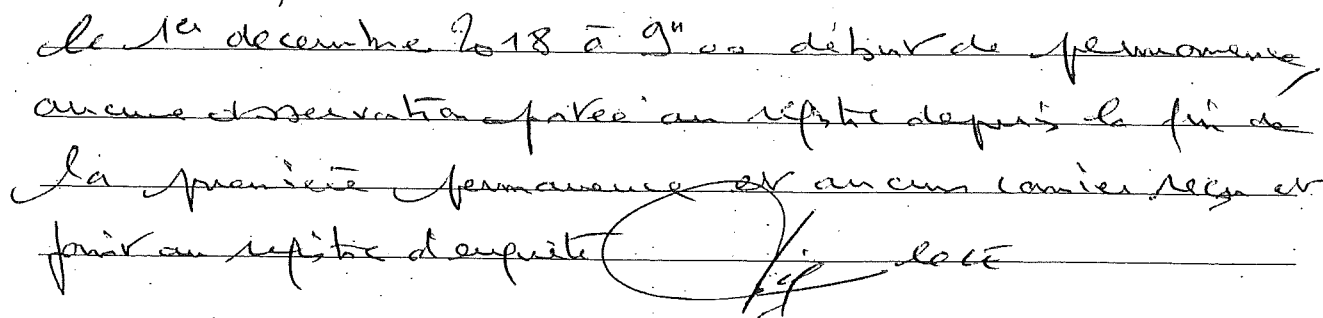 Le 1er decembre 2018 à 9h00 début de permanence,
aucune observation portée au registre depuis la fin de
la première permanence et aucun courrier reçu et
joint au registre d'enquête le CE